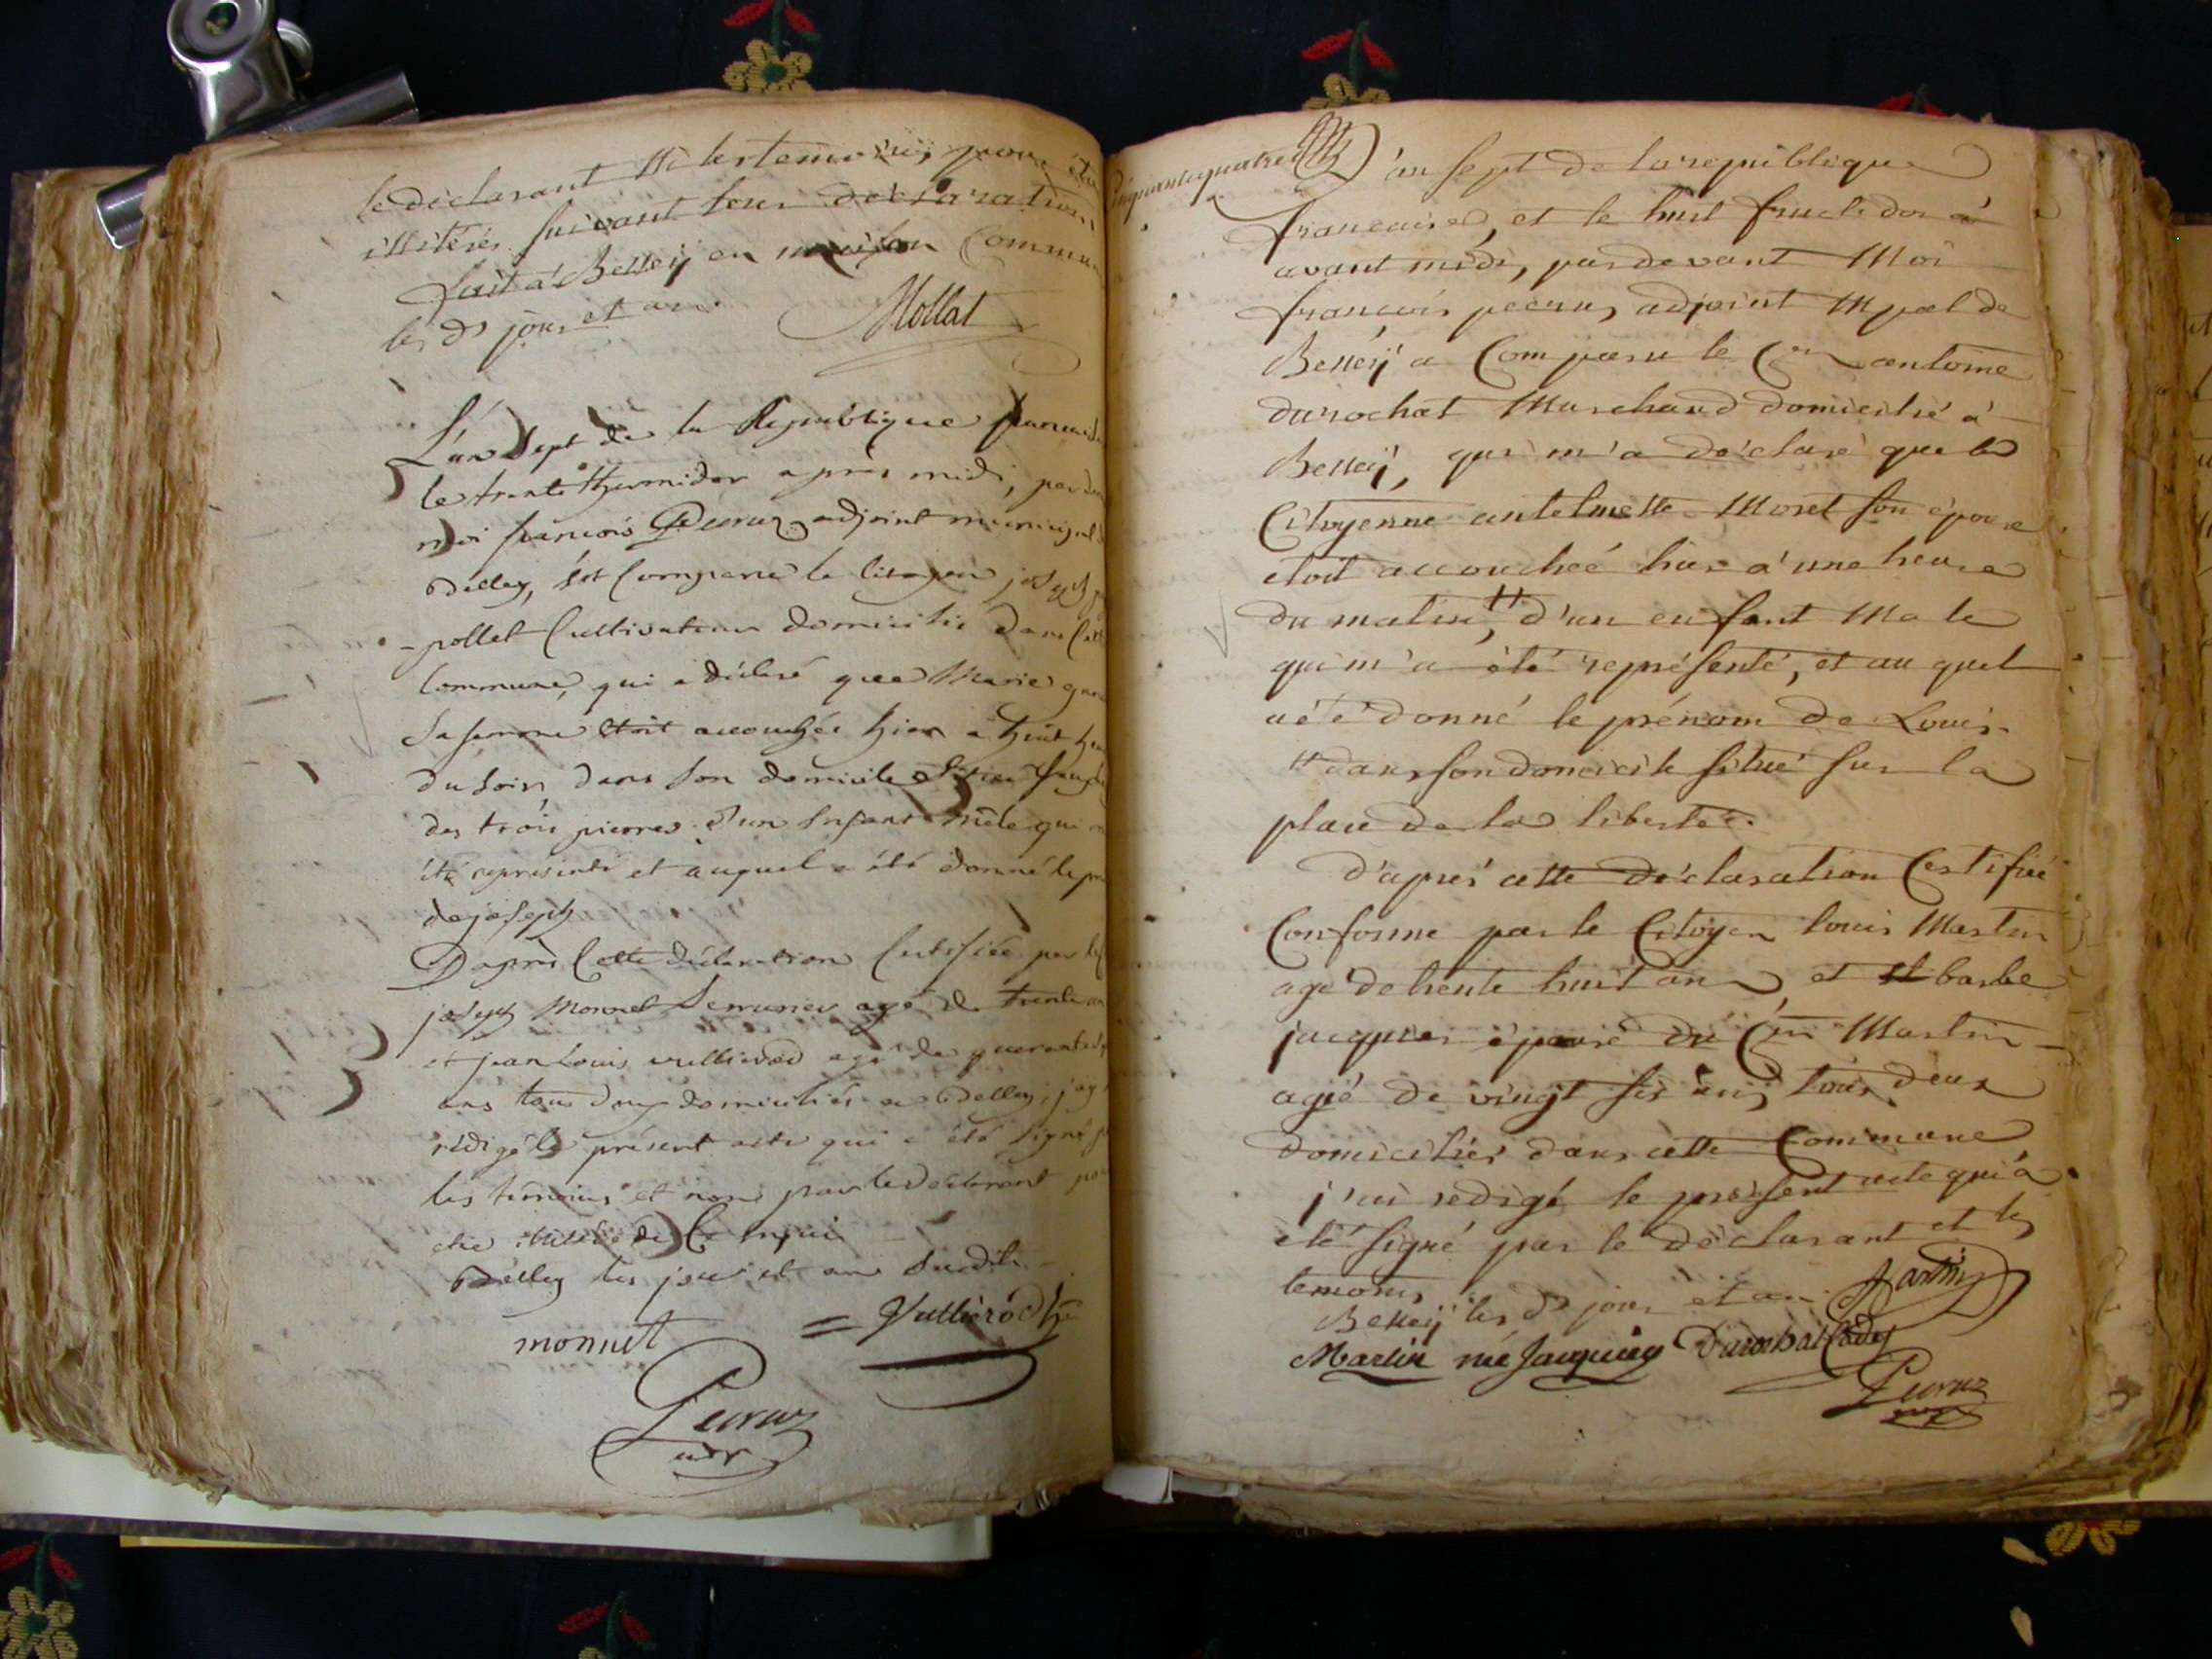 le déclarant ni les temoins pour être
illiterés suivant leur déclaration
fait à Belleÿ en maison Commune
les ds jour et an.
Mollat
L'an Sept de la République francaise
le trente thermidor après midi, par
moi francois Peeruz adjoint municipal
Belley, est Comparu le Citoyen joseph
-pollet Cultivateur domicilié dans
Commune, qui a déclaré que Marie
Sa femme étoit accouchée hier a huit
du Soir dans Son domicile
des trois pierres d'un Enfant mâle qui
été représenté et auquel a été donné le
de joseph
D'après Cette déclaration Certifiée par
joseph Monnet Serrurier agé de trente
et jean Louis agé de quarante
ans tous deux domiciliés a Belley, j'ay
rédigé le présent acte qui a été Signé
les témoins et non par le déclarant
etre illitéré de Ce enquis
Belley les jour et an Susdits
monnet
Peeruz
adjt
cinquante quatre
L'an sept de la republique
francaise, et le huit fructidor
avant midi, pardevant Moi
francois peeruz adjoint Mpal de
Belleÿ a Comparu le Cen antoine
durochat Marchand domicilié à
Belleÿ, qui m'a déclaré que la
Citoyenne antelmette Moret son épouse
etoit accouchée hier à une heure
du matin, d'un enfant Male
qui m'a été représenté, et au quel
a été donné le prénom de Louis.
dans son domicile situé sur la
place de la liberté.
d'après cette déclaration Certifiée
Conforme par le Citoyen louis Martin
agé de trente huit ans, et barbe
jacquier épouse du Cen Martin
agée de vingt six ans, tous deux
domiciliés dans cette Commune
j'ai redigé le present acte qui a
été signé par le déclarant et les
temoins
Belleÿ les ds jour et an.
Martin
Martin née Jacquier Durochat Cadet
Peeruz